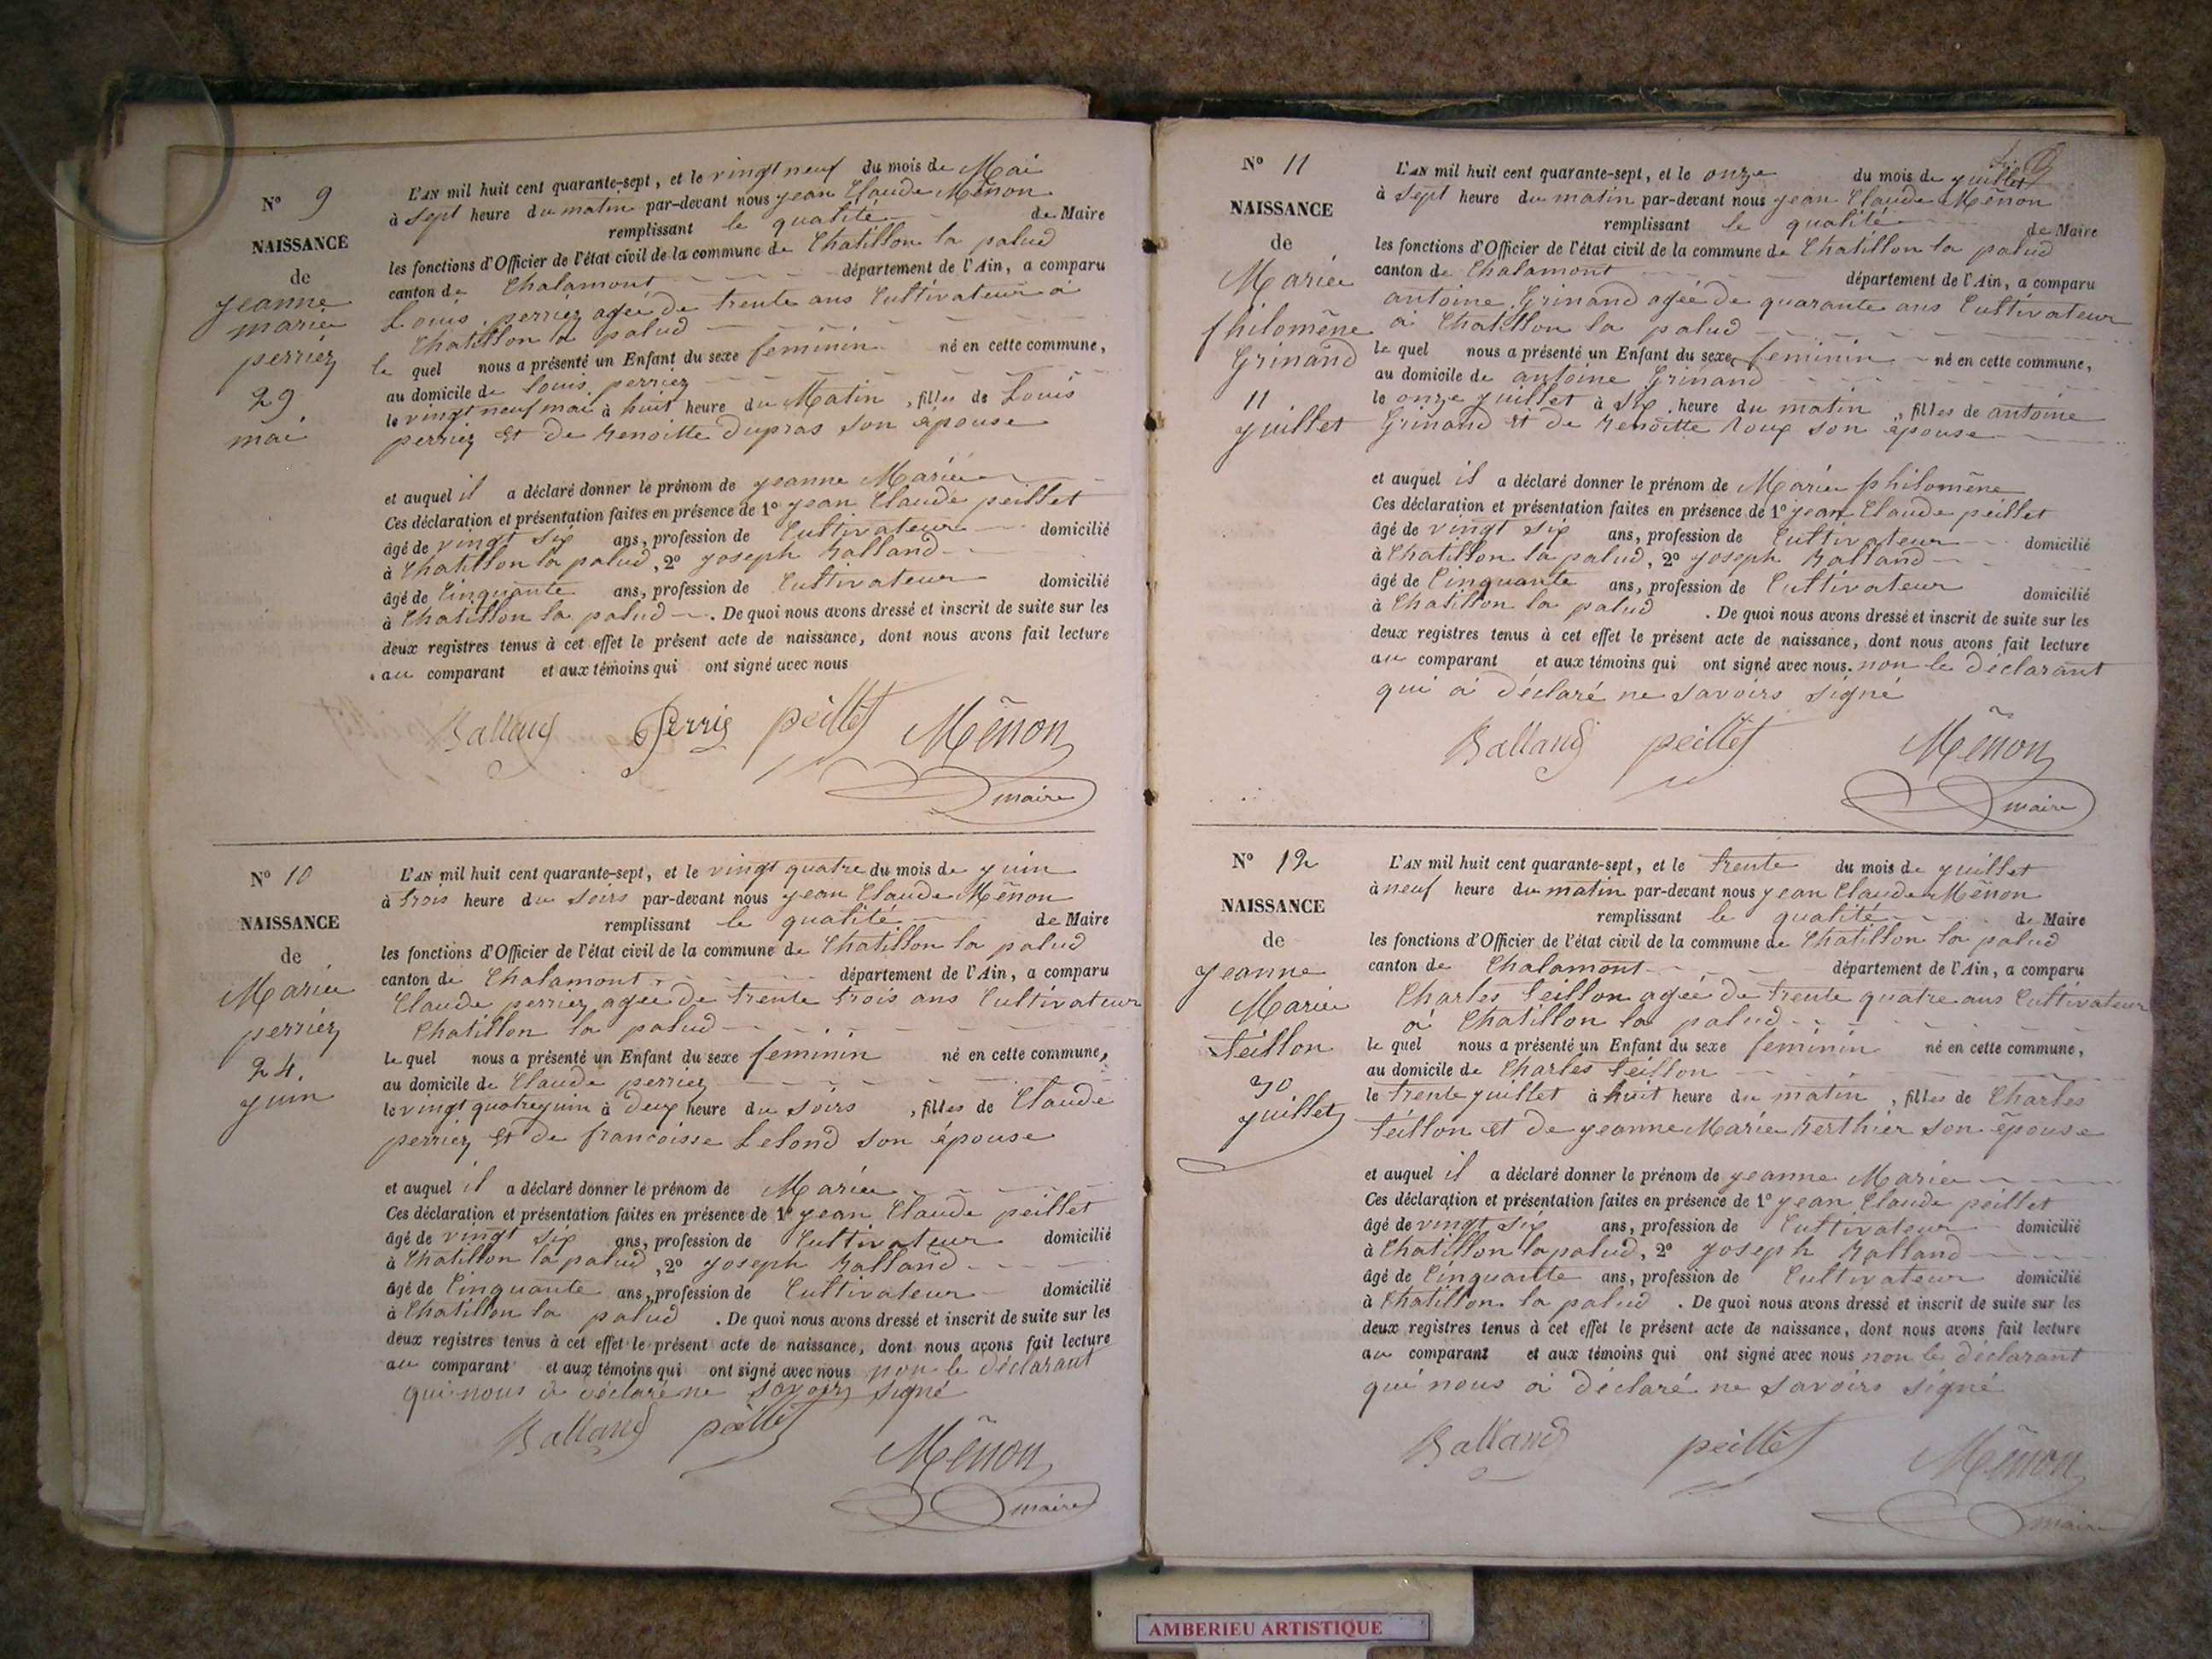 N° 9
NAISSANCE
de
jeanne
marie
perrier
29
mai
L'AN mil huit cent quarante-sept, et le vingt neuf du mois de Mai
à sept heure du matin par-devant nous jean Claude Mênon
remplissant le qualité de Maire
les fonctions d'Officier de l'état civil de la commune de Chatillon la palud
canton de Chalamont département de l'Ain, a comparu
Louis perrier agée de trente ans Cultivateur à
Chatillon la palud
le quel nous a présenté un Enfant du sexe feminin né en cette commune,
au domicile de Louis perrier
le vingt neuf mai à huit heure du Matin, filles de Louis
perrier et de Benoitte Dupras son épouse
et auquel il a déclaré donner le prénom de jeanne Marie
Ces déclaration et présentation faites en présence de 1° jean Claude peillet
âgé de vingt six ans, profession de Cultivateur domicilié
à Chatillon la palud, 2° joseph Balland
âgé de Cinquante ans, profession de Cultivateur domicilié
à Chatillon la palud. De quoi nous avons dressé et inscrit de suite sur les
deux registres tenus à cet effet le présent acte de naissance, dont nous avons fait lecture
au comparant et aux témoins qui ont signé avec nous
Balland Perrie peillet Mênon
maire
N° 10
NAISSANCE
de
Marie
perrier
24.
juin
L'AN mil huit cent quarante-sept, et le vingt quatre du mois de juin
à trois heure du soirs par-devant nous jean Claude Mênon
remplissant le qualité de Maire
les fonctions d'Officier de l'état civil de la commune de Chatillon la palud
canton de Chalamont département de l'Ain, a comparu
Claude perrier agée de trente trois ans Cultivateur
Chatillon la palud
le quel nous a présenté un Enfant du sexe feminin né en cette commune,
au domicile de Claude perrier
le vingt quatre juin à deux heure du soirs, filles de Claude
perrier et de francoisse Lelond son épouse
et auquel il a déclaré donner le prénom de Marie
Ces déclaration et présentation faites en présence de 1° jean Claude peillet
âgé de vingt six ans, profession de Cultivateur domicilié
à Chatillon la palud, 2° joseph Balland
âgé de Cinquante ans, profession de Cultivateur domicilié
à Chatillon la palud. De quoi nous avons dressé et inscrit de suite sur les
deux registres tenus à cet effet le présent acte de naissance, dont nous avons fait lecture
au comparant et aux témoins qui ont signé avec nous non le déclarant
qui nous à déclaré ne savoirs signé
Balland peillet
Mênon
maire
N° 11
NAISSANCE
de
Marie
philomène
Grinand
11
juillet
L'AN mil huit cent quarante-sept, et le onze du mois de juillet
à sept heure du matin par-devant nous jean Claude Mênon
remplissant le qualité de Maire
les fonctions d'Officier de l'état civil de la commune de Chatillon la palud
canton de Chalamont département de l'Ain, a comparu
antoine Grinand agée de quarante ans Cultivateur
à Chatillon la palud
le quel nous a présenté un Enfant du sexe feminin né en cette commune,
au domicile de antoine Grinand
le onze juillet à six heure du matin, filles de antoine
Grinand et de Benoitte Roux son épouse
et auquel il a déclaré donner le prénom de Marie philomène
Ces déclaration et présentation faites en présence de 1° jean Claude peillet
âgé de vingt six ans, profession de Cultivateur domicilié
à Chatillon la palud, 2° joseph Balland
âgé de Cinquante ans, profession de Cultivateur domicilié
à Chatillon la palud. De quoi nous avons dressé et inscrit de suite sur les
deux registres tenus à cet effet le présent acte de naissance, dont nous avons fait lecture
au comparant et aux témoins qui ont signé avec nous. non le déclarant
qui à déclaré ne savoirs signé
Balland peillet Mênon
maire
N° 12
NAISSANCE
de
jeanne
Marie
teillon
30
juillet
L'AN mil huit cent quarante-sept, et le trente du mois de juillet
à neuf heure du matin par-devant nous jean Claude Mênon
remplissant le qualité de Maire
les fonctions d'Officier de l'état civil de la commune de Chatillon la palud
canton de Chalamont département de l'Ain, a comparu
Charles teillon agée de trente quatre ans Cultivateur
à Chatillon la palud
le quel nous a présenté un Enfant du sexe féminin né en cette commune,
au domicile de Charles teillon
le trente juillet à huit heure du matin, filles de Charles
teillon et de jeanne Marie Berthier son épouse
et auquel il a déclaré donner le prénom de jeanne Marie
Ces déclaration et présentation faites en présence de 1° jean Claude peillet
âgé de vingt six ans, profession de Cultivateur domicilié
à Chatillon la palud, 2° joseph Balland
âgé de Cinquante ans, profession de Cultivateur domicilié
à Chatillon la palud. De quoi nous avons dressé et inscrit de suite sur les
deux registres tenus à cet effet le présent acte de naissance, dont nous avons fait lecture
au comparant et aux témoins qui ont signé avec nous non le déclarant
qui nous à déclaré ne savoirs signé
Balland peillet Mênon
maire
AMBERIEU ARTISTIQUE